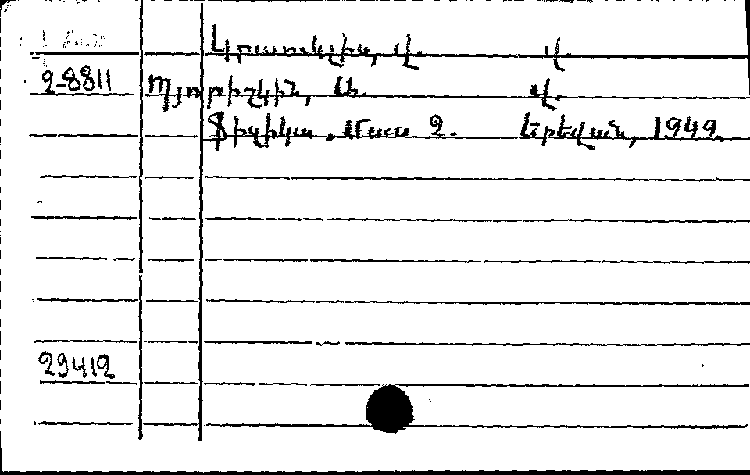 Կրաուկլիս, վ. վ.
2-8811 Պյորիշկին, Ա. վ.
Ֆիզիկա. Մաս 2. Երեվան, 1949.
29412